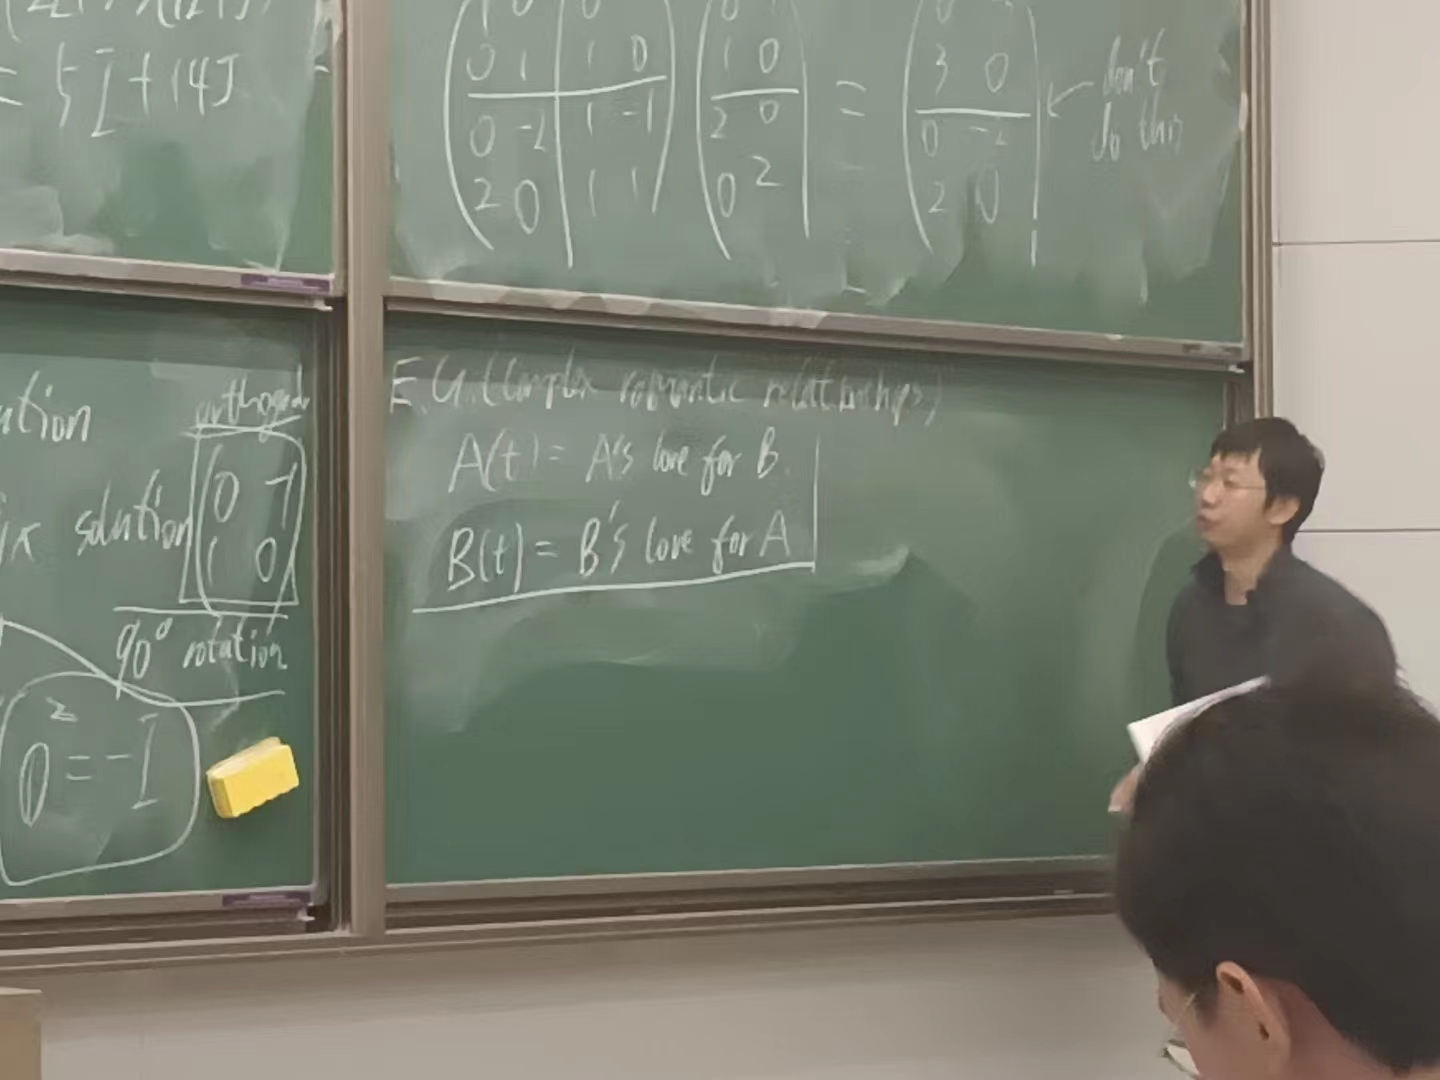 = 5I + 14J
0 1 | 1 0
0 -2 | 1 -1
2 0 | 1 1
1 0
2 0
0 2
=
3 0
0 -2
2 0
← don't
do this
orthogonal
solution
0 -1
1 0
90° rotation
2
0 = -I
E.G. (Complex romantic relationships)
A(t) = A's love for B.
B(t) = B's love for A